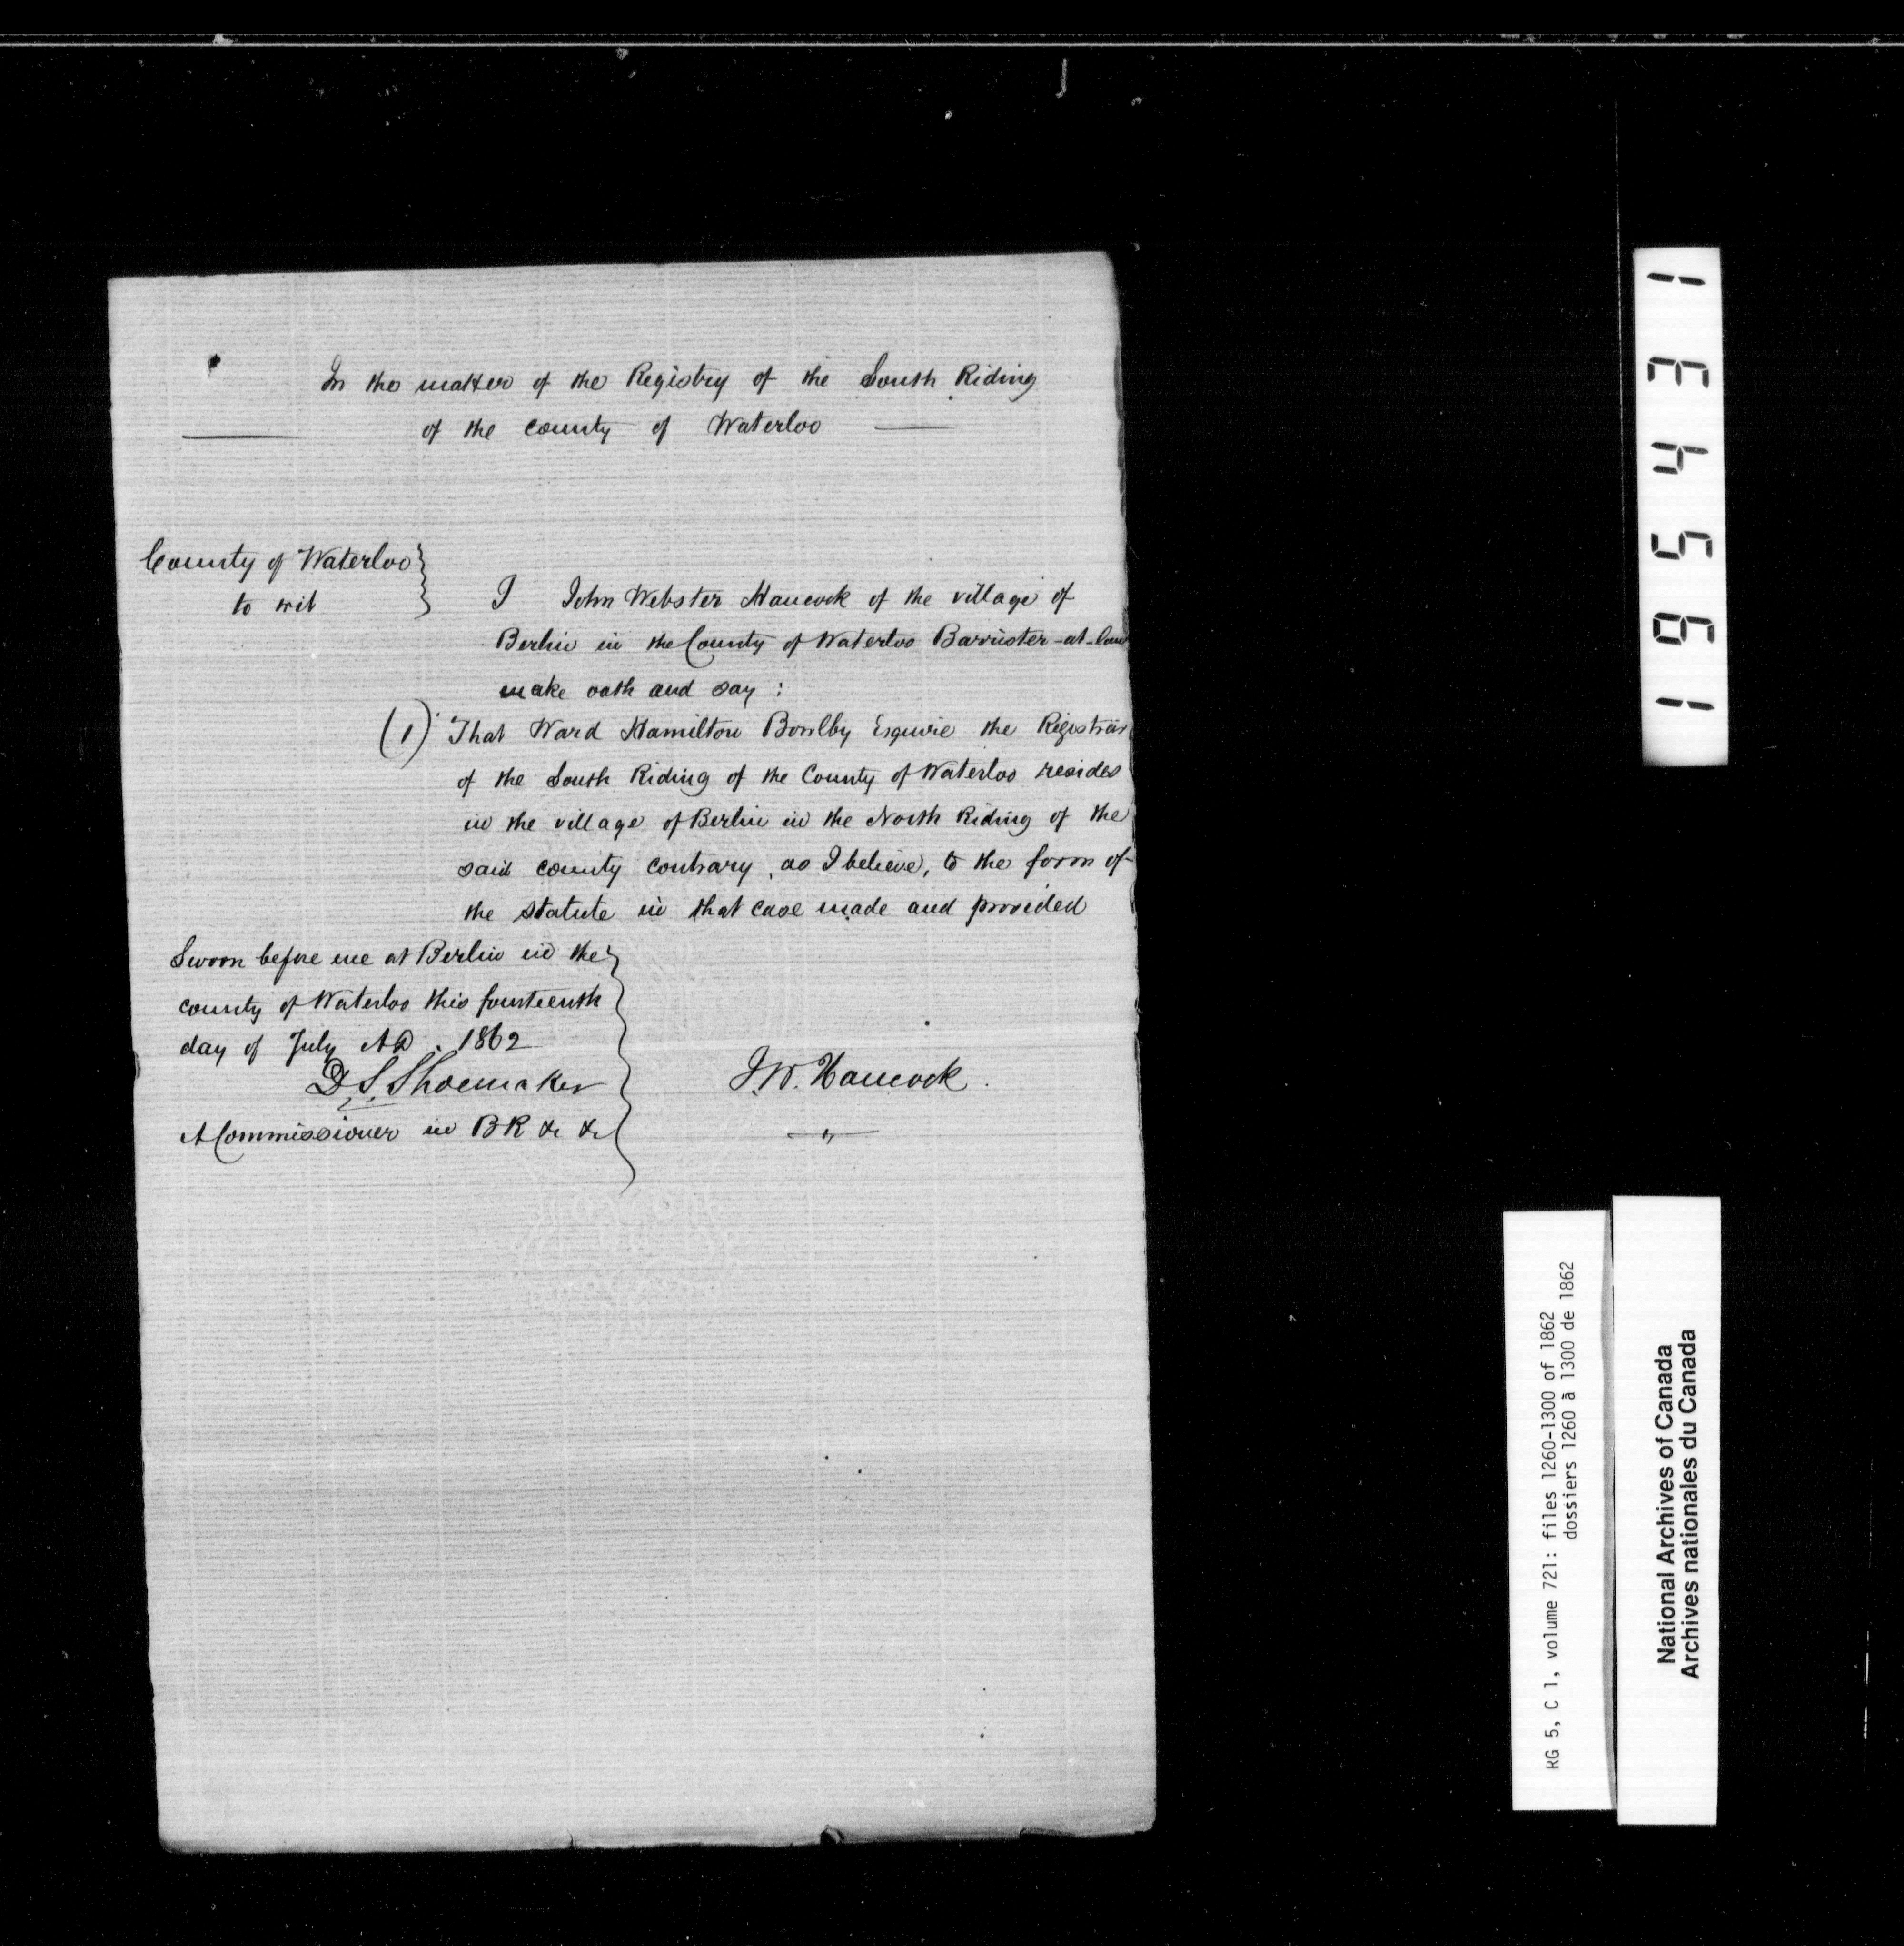 In the matter of the Registry of the South Riding
of the county of Waterloo
County of Waterloo
to wit
I John Webster Hancock of the village of
Berlin in the County of Waterloo Barrister-at-Law
make oath and say :
(1) That Ward Hamilton Bowlby Esquire the Registrar
of the South Riding of the County of Waterloo resides
in the village of Berlin in the North Riding of the
said county contrary, as I believe, to the form of
the statute in that case made and provided
Sworn before me at Berlin in the
county of Waterloo this fourteenth
day of July AD. 1862
D. S. Shoemaker
A Commissioner in BR &c &c
J.W. Hancock.
195431
RG 5, C 1, volume 721: files 1260-1300 of 1862
dossiers 1260 à 1300 de 1862
National Archives of Canada
Archives nationales du Canada